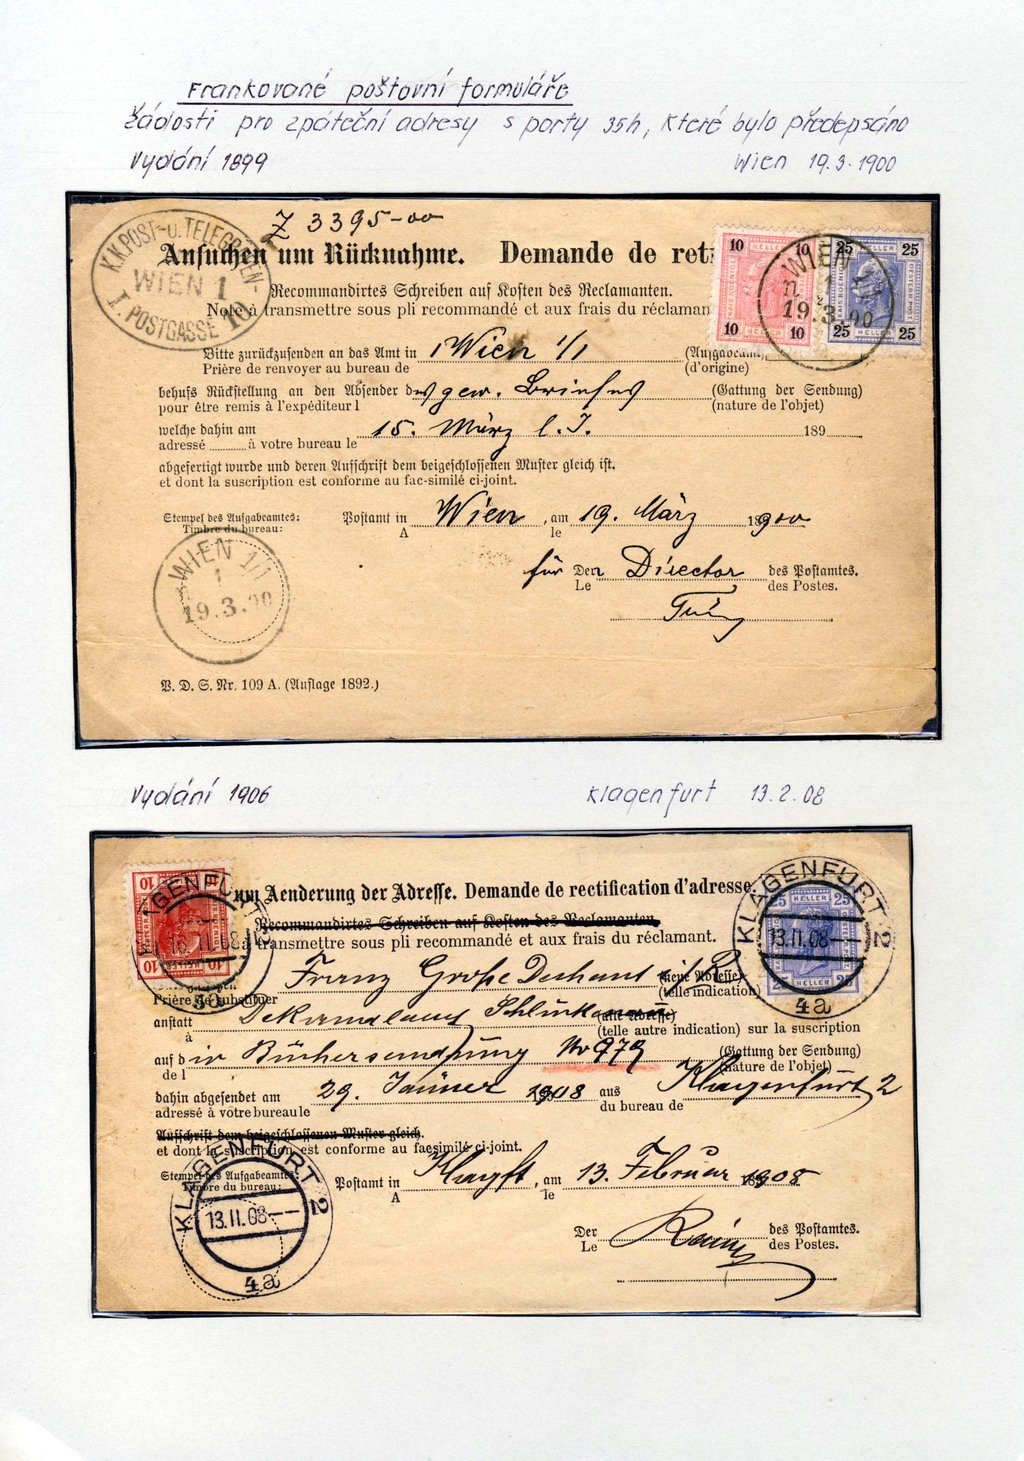 Frankované poštovní formuláře
žádosti pro zpáteční adresy s porty 35h, které bylo předepsáno
Vydání 1899 Wien 19.3.1900
Z 3395-00
K.K. POST- U. TELEGRAFEN-
WIEN 1
I. POSTGASSE 10
Ansuchen um Rücknahme. Demande de ret
10 10 10 10
25 25 25 25
HELLER HELLER
WIEN 1/1
19.3.00
Recommandirtes Schreiben auf Kosten des Reclamanten.
Note à transmettre sous pli recommandé et aux frais du réclaman
Bitte zurückzusenden an das Amt in 1 Wien 1/1 (Aufgabeamt)
Prière de renvoyer au bureau de (d'origine)
behufs Rückstellung an den Absender des gew. Briefes (Gattung der Sendung)
pour être remis à l'expéditeur l (nature de l'objet)
welche dahin am 15. März l. J. 189
adressé à votre bureau le
abgefertigt wurde und deren Aufschrift dem beigeschlossenen Muster gleich ist.
et dont la suscription est conforme au fac-similé ci-joint.
Stempel des Aufgabeamtes: Postamt in Wien, am 19. März 1900
Timbre du bureau: A le
WIEN 1/1
1
19.3.00
für Den Director des Postamtes.
Le des Postes.
V. D. S. Nr. 109 A. (Auflage 1892.)
Vydání 1906 Klagenfurt 13.2.08
um Aenderung der Adresse. Demande de rectification d'adresse.
Recommandirtes Schreiben auf Kosten des Reclamanten.
à transmettre sous pli recommandé et aux frais du réclamant.
10 10 10 10
25 25 25
HELLER HELLER
KLAGENFURT 2
13.II.08
4a
Franz Große Dechant i/R (neue Adresse)
Prière de substituer (telle indication)
anstatt (alte Adresse)
à (telle autre indication) sur la suscription
auf d ie Büchersendung No 979 (Gattung der Sendung)
de l (nature de l'objet)
dahin abgesendet am 29. Jänner 1908 aus Klagenfurt 2
adressé à votre bureau le du bureau de
Aufschrift dem beigeschlossenen Muster gleich.
et dont la suscription est conforme au facsimilé ci-joint.
Stempel des Aufgabeamtes: Postamt in Klagft, am 13. Februar 1908
Timbre du bureau: A le
KLAGENFURT 2
13.II.08
4a
Der des Postamtes.
Le des Postes.